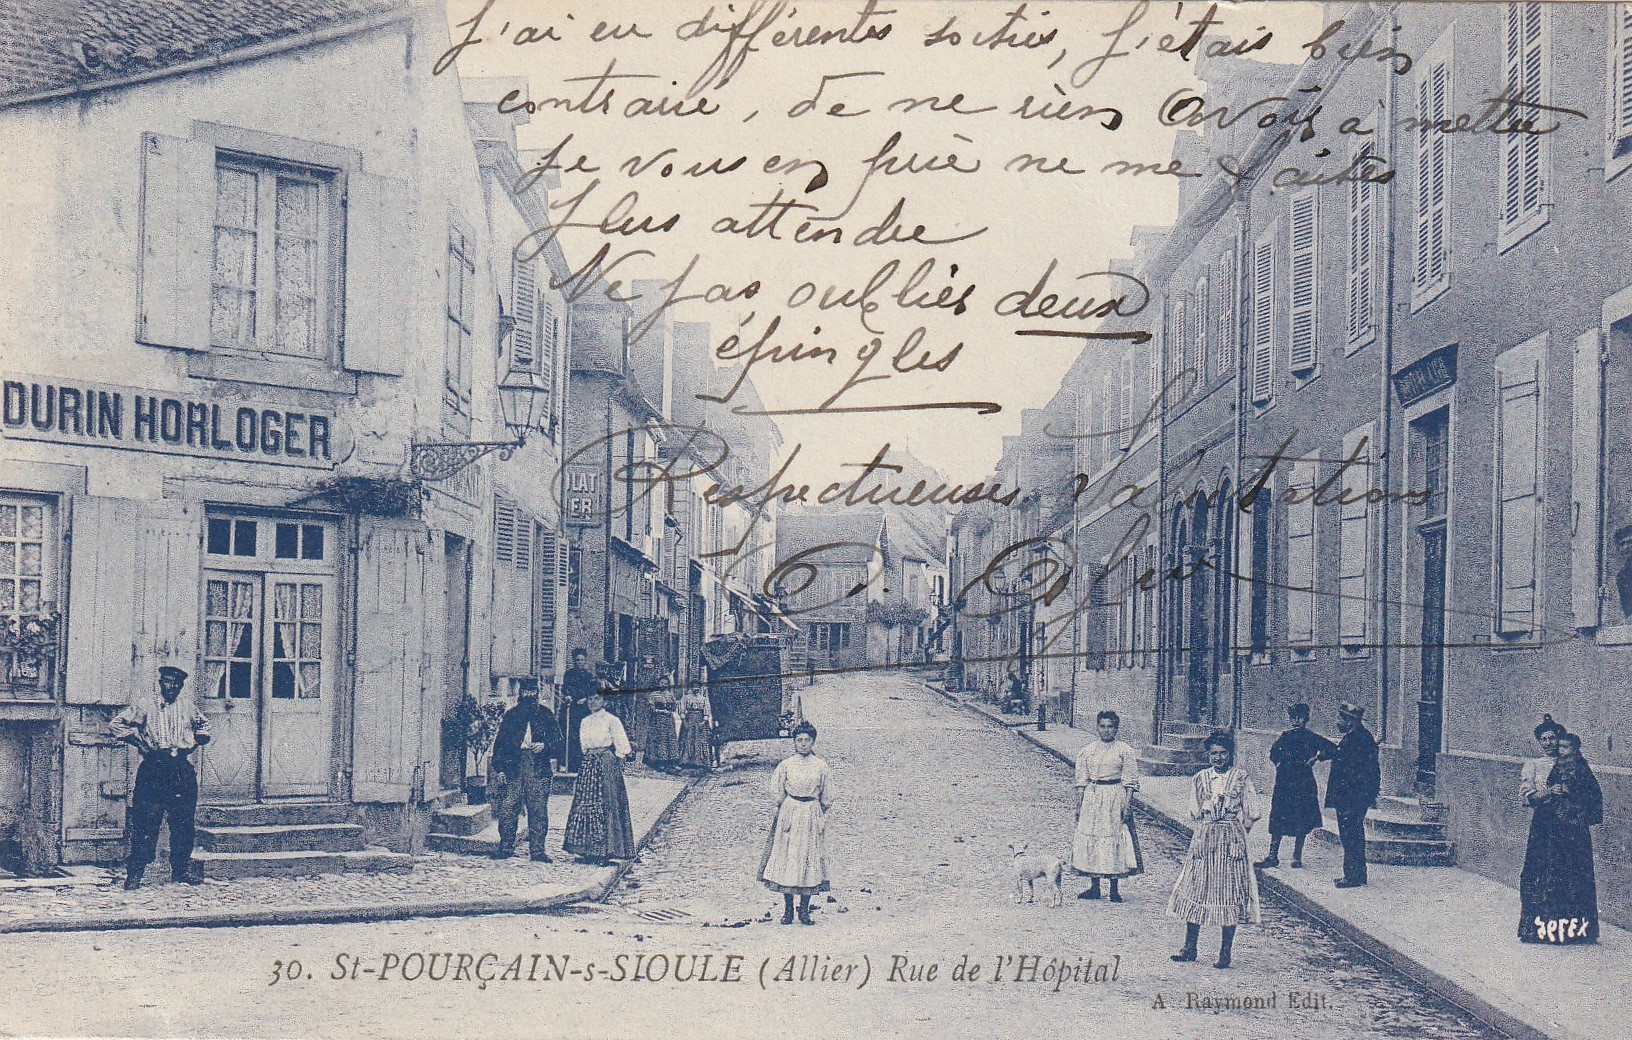 J'ai eu différentes sorties, j'étais bien
contrarié, de ne rien avoir à mettre
Je vous en prie ne me faites
plus attendre
Ne pas oublier deux
épingles
Respectueuses Salutations
DURIN HORLOGER
LAT
ER
30. St-POURÇAIN-s-SIOULE (Allier) Rue de l'Hôpital
A Raymond Edit.